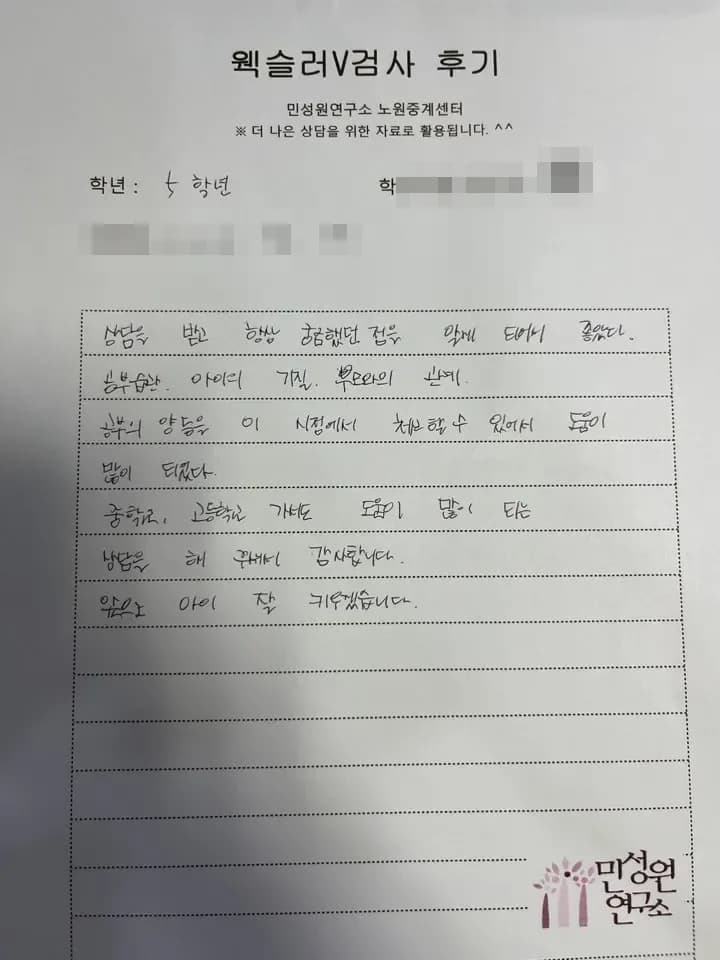 웩슬러V검사 후기
민성원연구소 노원중계센터
※ 더 나은 상담을 위한 자료로 활용됩니다. ^^
학년 : 5 학년
학
상담을 받고 항상 궁금했던 점을 알게 되어서 좋았다.
공부습관. 아이의 기질. 부모와의 관계.
공부의 양 등을 이 시점에서 체크할 수 있어서 도움이
많이 되었다.
중학교, 고등학교 가서도 도움이 많이 되는
상담을 해 주셔서 감사합니다.
앞으로 아이 잘 키우겠습니다.
민성원
연구소